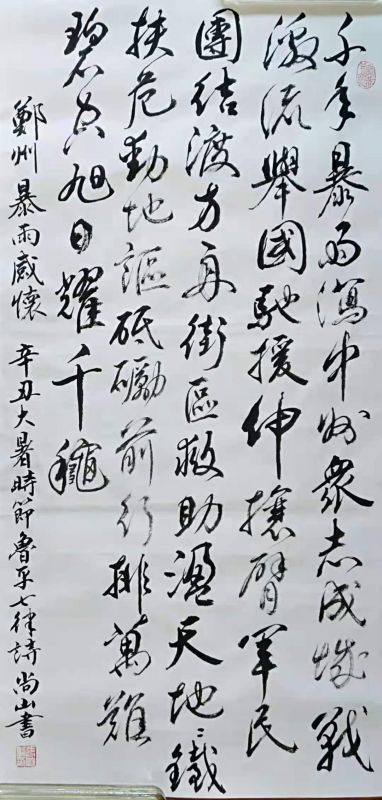 千年暴雨瀉中州衆志成城戰
激流舉國馳援伸攘臂軍民
團結渡方舟街區救助溫天地〻鐵
扶危動地謳砥礪前行排萬難
碧空旭日耀千穐
鄭州暴雨感懷 辛丑大暑時節魯平七律詩尚山書